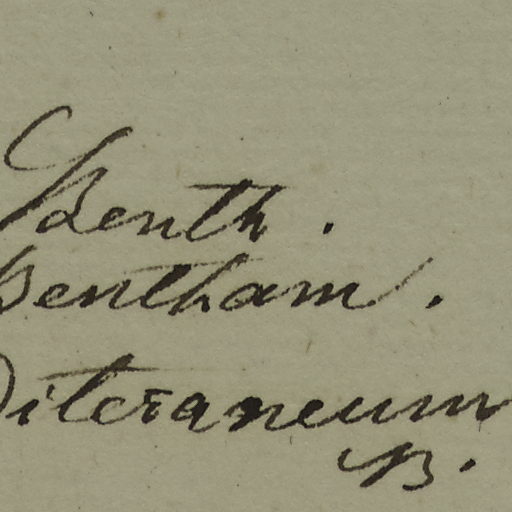 Benth.
Bentham.
Diteraneum
B.